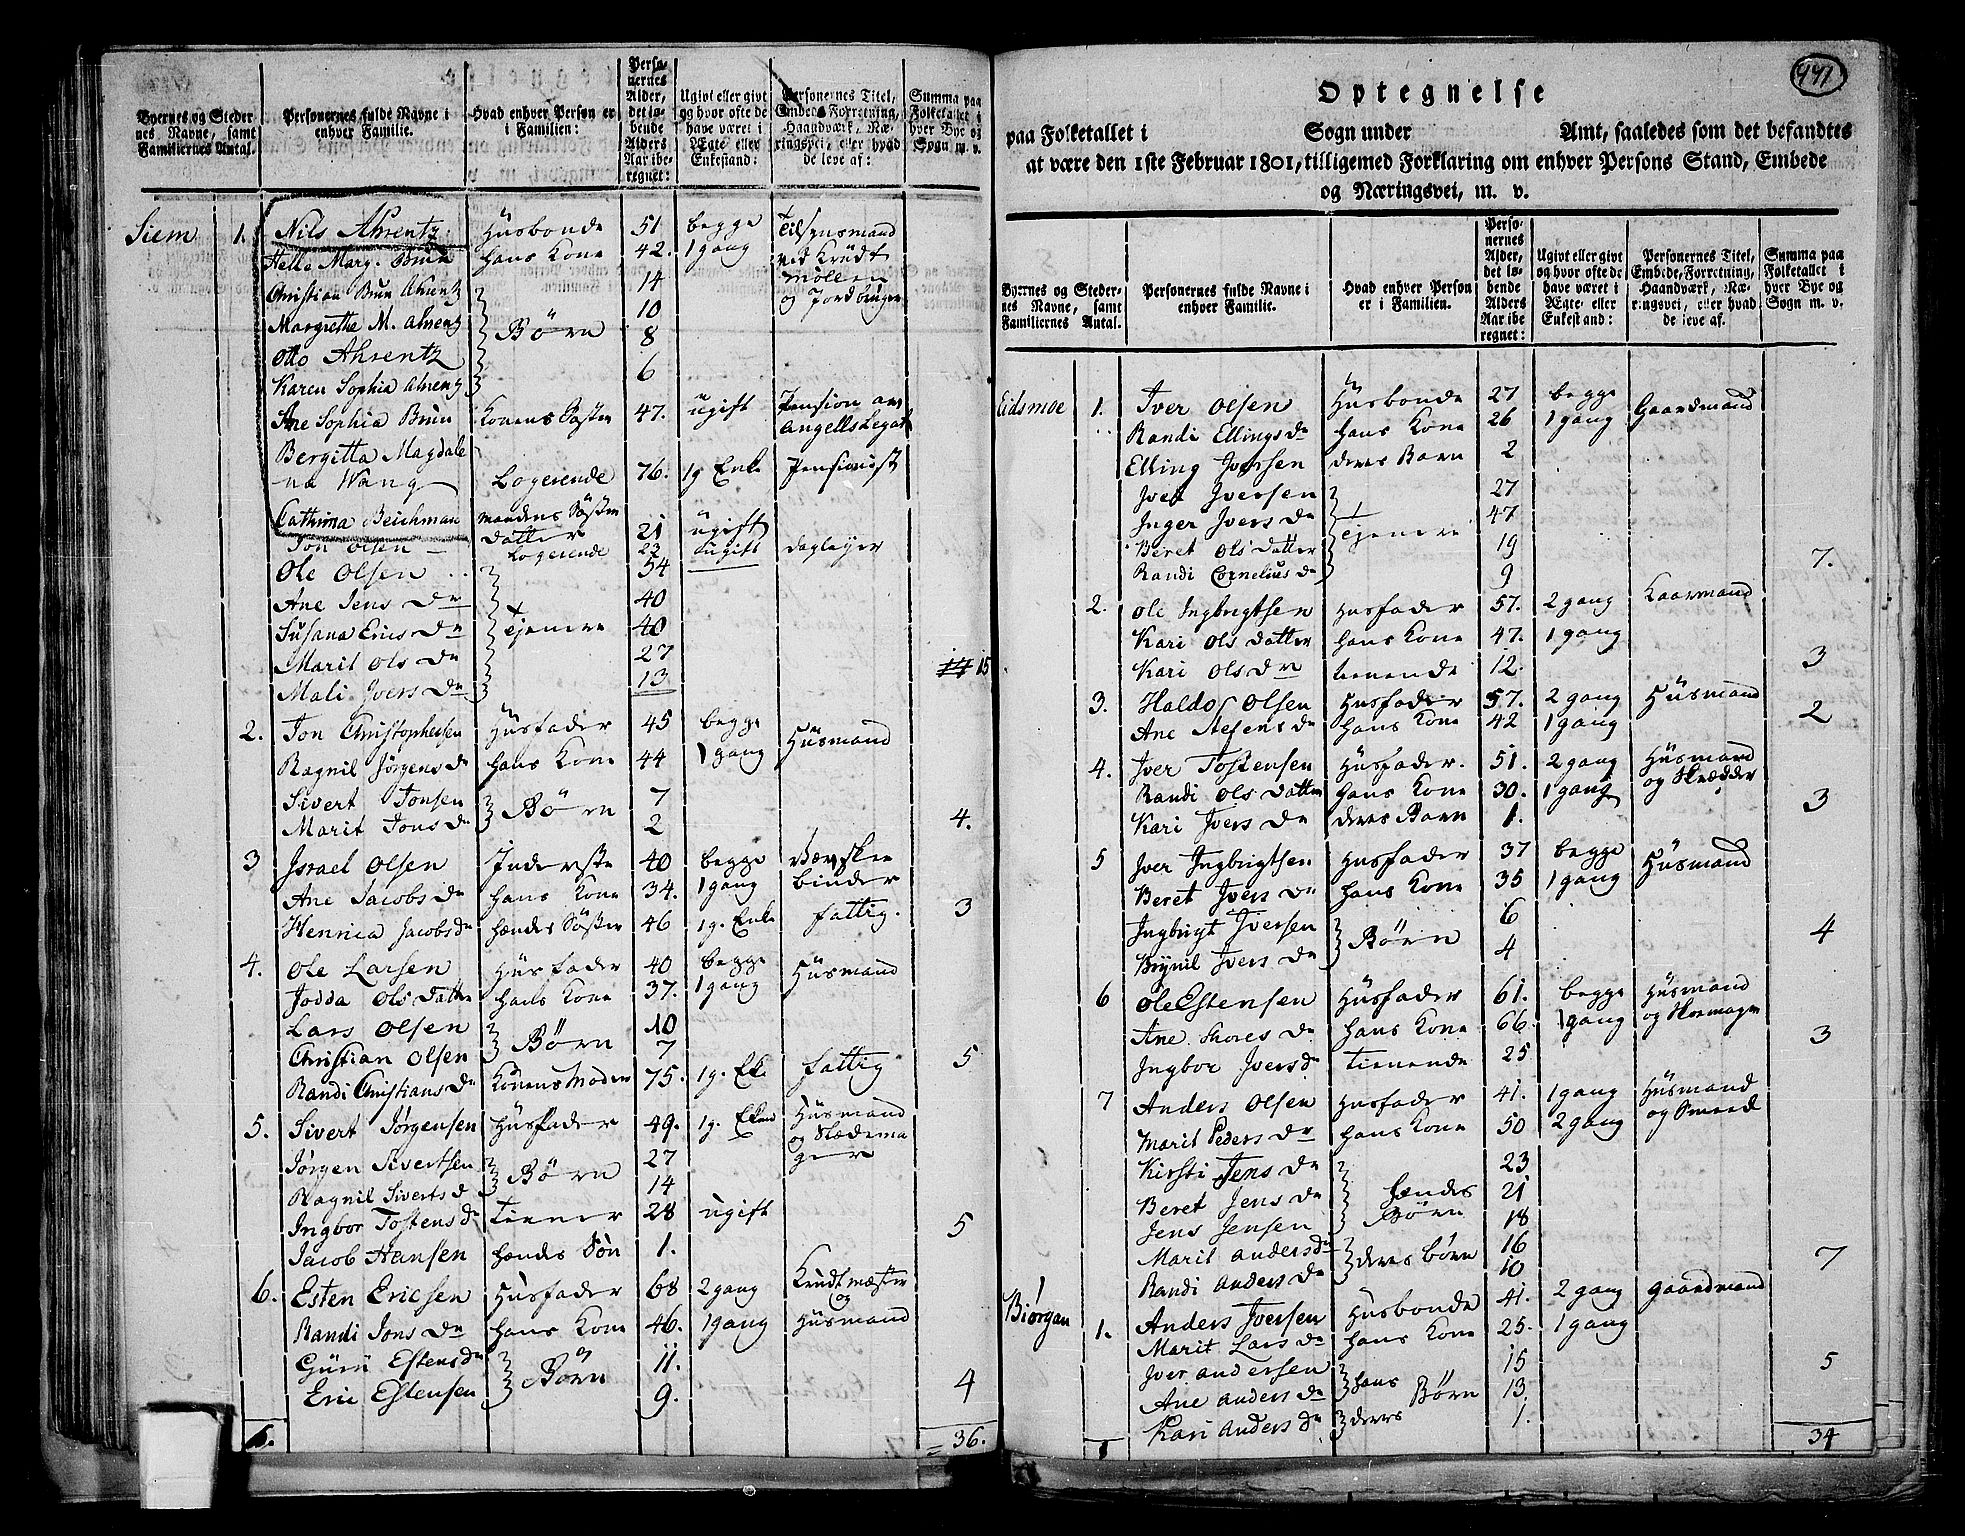 Byernes og Steder-
nes Navne, samt
Familiernes Antal.
Personernes fulde Navne i
enhver Familie.
Hvad enhver Person er
i Familien:
Perso-
nernes
Alder,
det lø-
bende
Alders
Aar ibe-
regnet:
Ugivt eller givt
og hvor ofte de
have været i
Ægte- eller
Enkestand:
Personernes Titel,
Embede, Forretning,
Haandværk, Næ-
ringsvei, eller hvad
de leve af:
Summa paa
Folketallet i
hver Bye og
Sogn m. v.
Siem 1. Nils Ahrentz Husbonde 51 begge Tilsynsmand
Helle Marg. Brun hans Kone 42. 1 gang ved Krudt
Christian Brun Ahrentz 14 Møllen
og Jordbruger
Margrethe M. Ahrentz Børn 10
Otto Ahrentz 8
Karen Sophia Ahrentz 6
Ane Sophia Brun Konens Søster 47. ugift Pension av
Angells Legat
Bergitta Magdale
na Wang Logerende 76. 1 g Enke Pensionist
Cathrina Beichman mandens Søster
datter 21 ugift
Jon Olsen Logerende 22 ugift dagleyer
Ole Olsen 54
Ane Jens Dr 40
Susana Erics Dr Tjenere 40
Marit Ols Dr 27
Mali Ivers Dr 13 15
2. Jon Christophersen Husfader 45 begge Husmand
Ragnil Jørgens d 44 hans Kone 1 gang
Sivert Jonsen Børn 7
Marit Jons Dr 2 4.
3 Israel Olsen Inderste 40 begge Væveskee
Ane Jacobs d hans Kone 34. 1 gang binder
Henrica Jacobsdr hendes Søster 46 1 g. Enke fattig. 3
4. Ole Larsen Husfader 40 begge Husmand
Jodda Ols Datter hans Kone 37. 1 gang
Lars Olsen Børn 10
Christian Olsen 7
Randi Christians Dr Konens Moder 75. 1 g. Eke fattig 5
5. Sivert Jørgensen Husfader 49. 1 g. Husmand
og Slædema
ger
Jørgen Sivertsen Børn 27
Ragnil Siverts d 14
Ingbor Tostens d Tiener 28 ugift
Jacob Hansen hendes Søn 1. 5
6. Esten Ericsen Husfader 68 2 gang Krudtmester
og
Randi Jons Dr hans Kone 46. 1 gang Husmand
Guru Estens Dr Børn 11.
Eric Estensen 9. 4
6. = 36.
441
Optegnelse
paa Folketallet i Sogn under Amt, saaledes som det befandtes
at være den 1ste Februar 1801, tilligemed Forklaring om enhver Persons Stand, Embede
og Næringsvei, m. v.
Byernes og Steder-
nes Navne, samt
Familiernes Antal.
Personernes fulde Navne i
enhver Familie.
Hvad enhver Person
er i Familien.
Perso-
nernes
Alder,
det lø-
bende
Alders
Aar ibe-
regnet:
Ugivt eller givt
og hvor ofte de
have været i
Ægte- eller
Enkestand:
Personernes Titel,
Embede, Forretning,
Haandværk, Næ-
ringsvei, eller hvad
de leve af.
Summa paa
Folketallet i
hver Bye og
Sogn m. v.
Eidsmoe 1. Iver Olsen Husbonde 27 begge Gaardmand
Randi Ellings Dr hans Kone 26 1 gang
Elling Iversen deres Barn 2
Iver Iversen 27
Inger Ivers Dr Tjenere 47
Beret Ols Datter 19
Randi Cornelius Dr 9 7.
2. Ole Ingbrigtsen Husfader 57. 2 gang Kaarmand
Kari Ols Datter hans Kone 47. 1 gang
Kari Ols Dr tienende 12. 3
3. Haldo Olsen Husfader 57. 2 gang Husmand
Ane Stefens Dr hans Kone 42 1 gang 2
4. Iver Tostensen Husfader. 51. 2 gang Husmand
Randi Ols Datter hans Kone 30. 1 gang og Skrædder
Kari Ivers Dr deres Barn 1. 3
5 Iver Ingbrigtsen Husfader 37 begge Husmand
Beret Ivers Dr hans Kone 35 1 gang
Ingbrigt Iversen Børn 6
Brynil Ivers Dr 4 4
6 Ole Estensen Husfader 61. begge Husmand
Ane Thores Dr hans Kone 66. 1 gang og Skomager
Ingbor Ivers Dr tienende 25 3
7 Anders Olsen Husfader 41. 1 gang Husmand
Marit Peders Dr hans Kone 50 2 gang og Smed
Kirsti Jens Dr 23
Beret Jens Dr hendes 21
Jens Jensen Børn 18
Marit Anders Dr deres børn 16
Randi Anders Dr 10 7
Biørgan 1. Anders Iversen Husbonde 41. 2 gang gaardmand
Marit Lars Dr hans Kone 25. 1 gang
Iver Andersen hans 15
Ane Anders Dr Børn 13.
Kari Anders Dr deres 1. 5
8 34